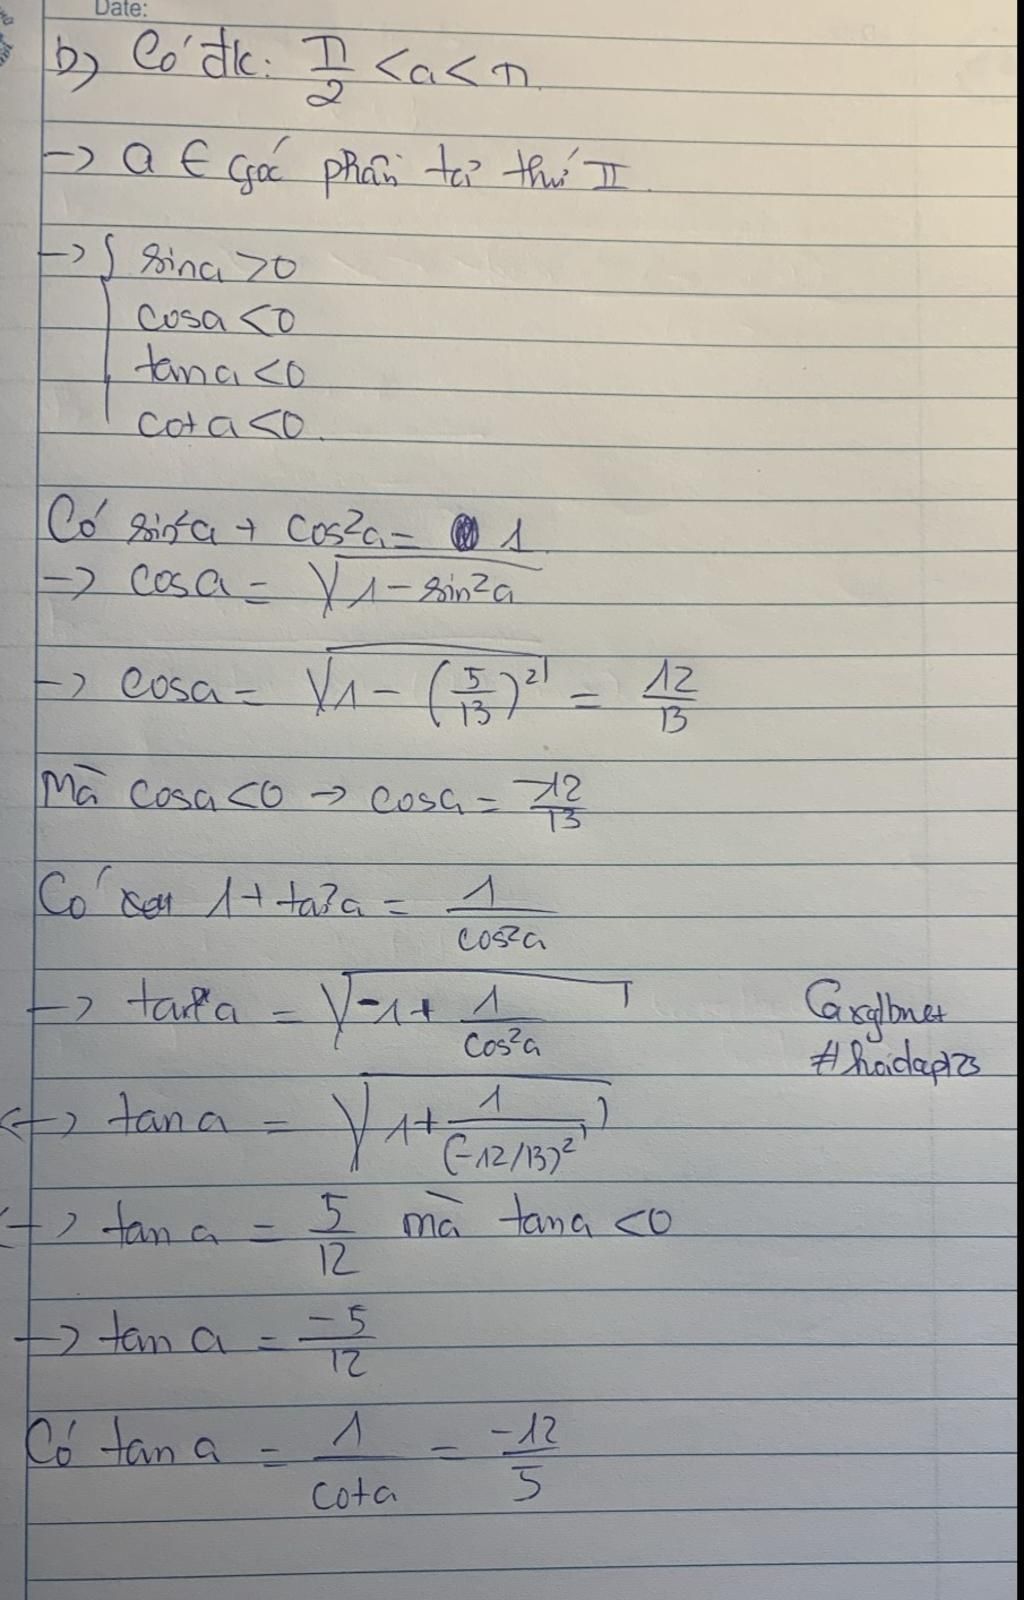 Date:
b) Có đk: π/2 < a < π
→ a ∈ góc phần tử thứ II.
→ { sina > 0
cosa < 0
tana < 0
cota < 0.
Có sin²a + cos²a = 1
→ cosa = √(1 - sin²a)
→ cosa = √(1 - (5/13)²) = 12/13
Mà cosa < 0 → cosa = -12/13
Có 1 + ta²a = 1/cos²a
→ tan a = √(-1 + 1/cos²a)
↔ tan a = √(1 + 1/(-12/13)²)
↔ tan a = 5/12 mà tana < 0
→ tan a = -5/12
Có tan a = 1/cota = -12/5
#hoidap123